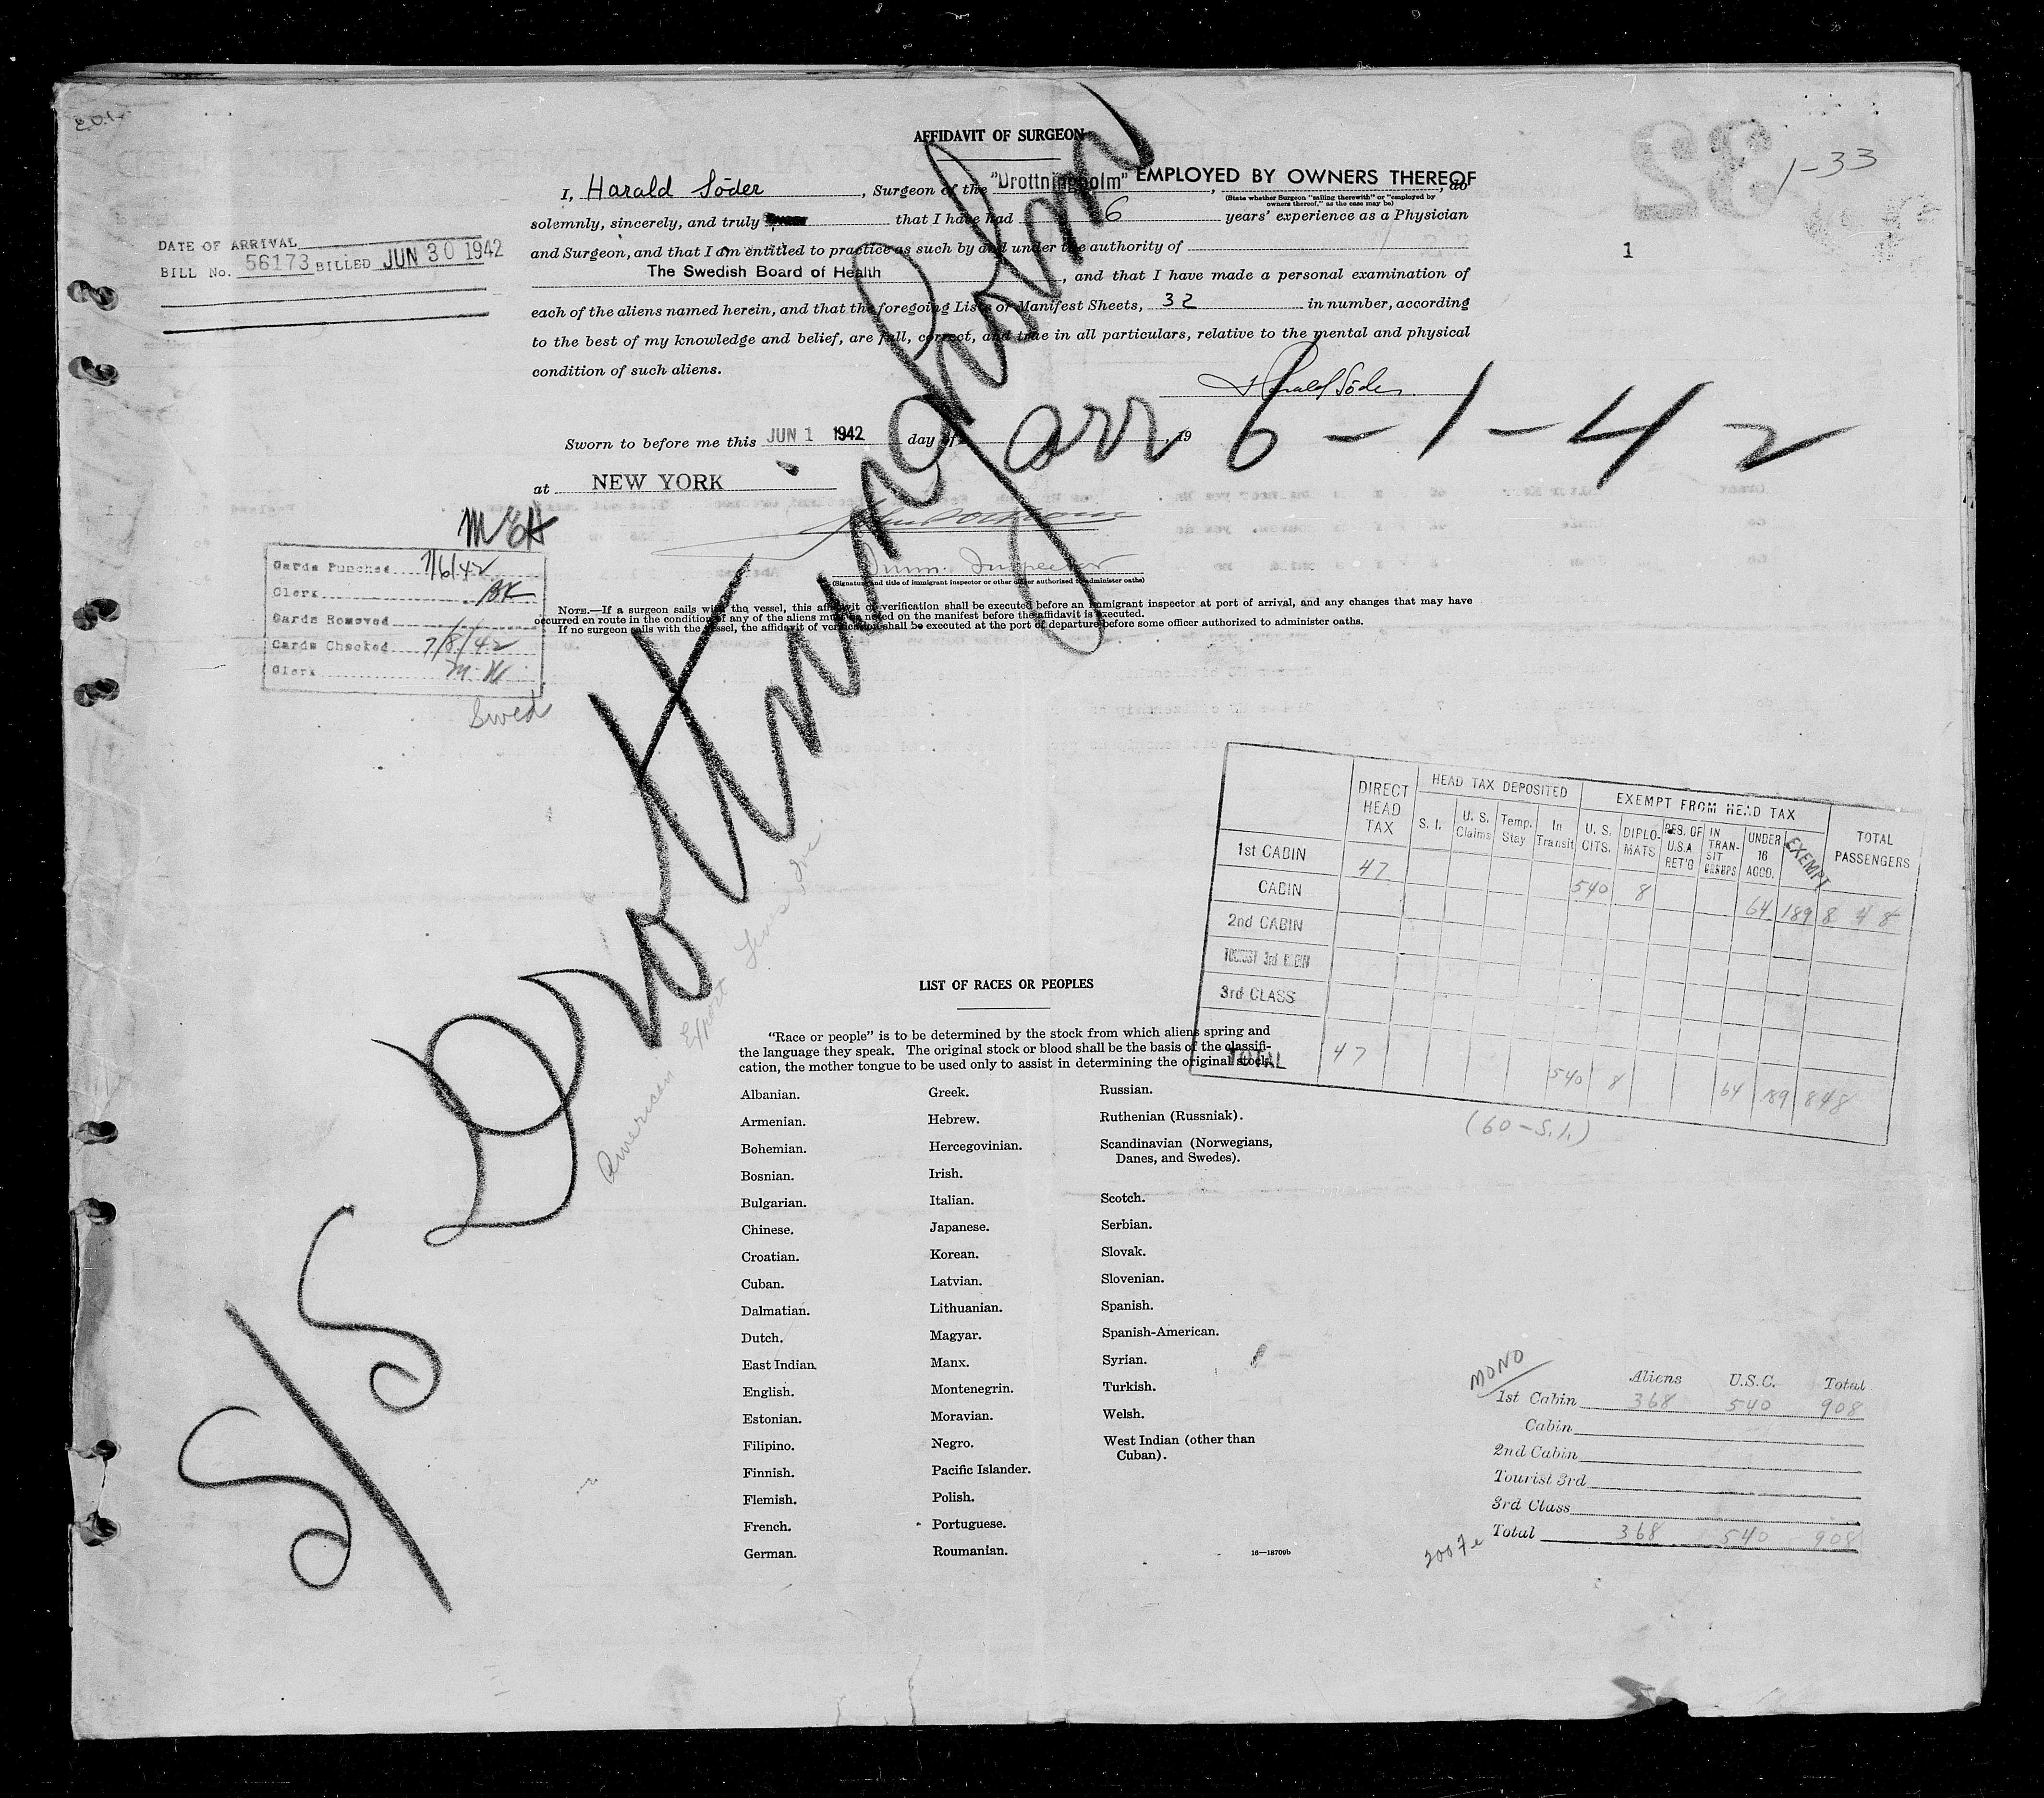 AFFIDAVIT OF SURGEON
I, Harald Söder, Surgeon of the "Drottningholm" EMPLOYED BY OWNERS THEREOF, do
(State whether Surgeon "sailing therewith" or "employed by owners thereof," as the case may be)
solemnly, sincerely, and truly that I have had 6 years' experience as a Physician
and Surgeon, and that I am entitled to practice as such by and under the authority of
The Swedish Board of Health, and that I have made a personal examination of
each of the aliens named herein, and that the foregoing Lists or Manifest Sheets, 32 in number, according
to the best of my knowledge and belief, are full, correct, and true in all particulars, relative to the mental and physical
condition of such aliens.
Harald Söder
Sworn to before me this JUN 1 1942 day of 19
at NEW YORK
Imm. Inspector
(Signature and title of immigrant inspector or other officer authorized to administer oaths)
NOTE.—If a surgeon sails with the vessel, this affidavit of verification shall be executed before an immigrant inspector at port of arrival, and any changes that may have
occurred en route in the condition of any of the aliens must be noted on the manifest before the affidavit is executed.
If no surgeon sails with the vessel, the affidavit of verification shall be executed at the port of departure before some officer authorized to administer oaths.
1-33
32
1
DATE OF ARRIVAL
BILL No. 56173 BILLED JUN 30 1942
S/S Drottningholm
arr 6-1-42
Cards Punched 7/6/42
Clerk BK
Cards Removed
Cards Checked 7/8/42
Clerk
Swed
American Export Lines
DIRECT HEAD TAX
HEAD TAX DEPOSITED
EXEMPT FROM HEAD TAX
TOTAL PASSENGERS
S. I. U. S. Claims Temp. Stay In Transit U. S. CITS. DIPLOMATS RES. OF U.S.A RET'G IN TRANSIT UNDER 16 ACCD. EXEMPT
1st CABIN 47 540 8 64 189 848
CABIN
2nd CABIN
TOURIST 3rd CABIN
3rd CLASS
TOTAL 47 540 8 64 189 848
(60-S.I.)
LIST OF RACES OR PEOPLES
"Race or people" is to be determined by the stock from which aliens spring and
the language they speak. The original stock or blood shall be the basis of the classifi-
cation, the mother tongue to be used only to assist in determining the original stock.
Albanian.
Armenian.
Bohemian.
Bosnian.
Bulgarian.
Chinese.
Croatian.
Cuban.
Dalmatian.
Dutch.
East Indian.
English.
Estonian.
Filipino.
Finnish.
Flemish.
French.
German.
Greek.
Hebrew.
Hercegovinian.
Irish.
Italian.
Japanese.
Korean.
Latvian.
Lithuanian.
Magyar.
Manx.
Montenegrin.
Moravian.
Negro.
Pacific Islander.
Polish.
Portuguese.
Roumanian.
Russian.
Ruthenian (Russniak).
Scandinavian (Norwegians,
Danes, and Swedes).
Scotch.
Serbian.
Slovak.
Slovenian.
Spanish.
Spanish-American.
Syrian.
Turkish.
Welsh.
West Indian (other than
Cuban).
16—18709b
MONO
Aliens U.S.C. Total
1st Cabin 368 540 908
Cabin
2nd Cabin
Tourist 3rd
3rd Class
Total 368 540 908